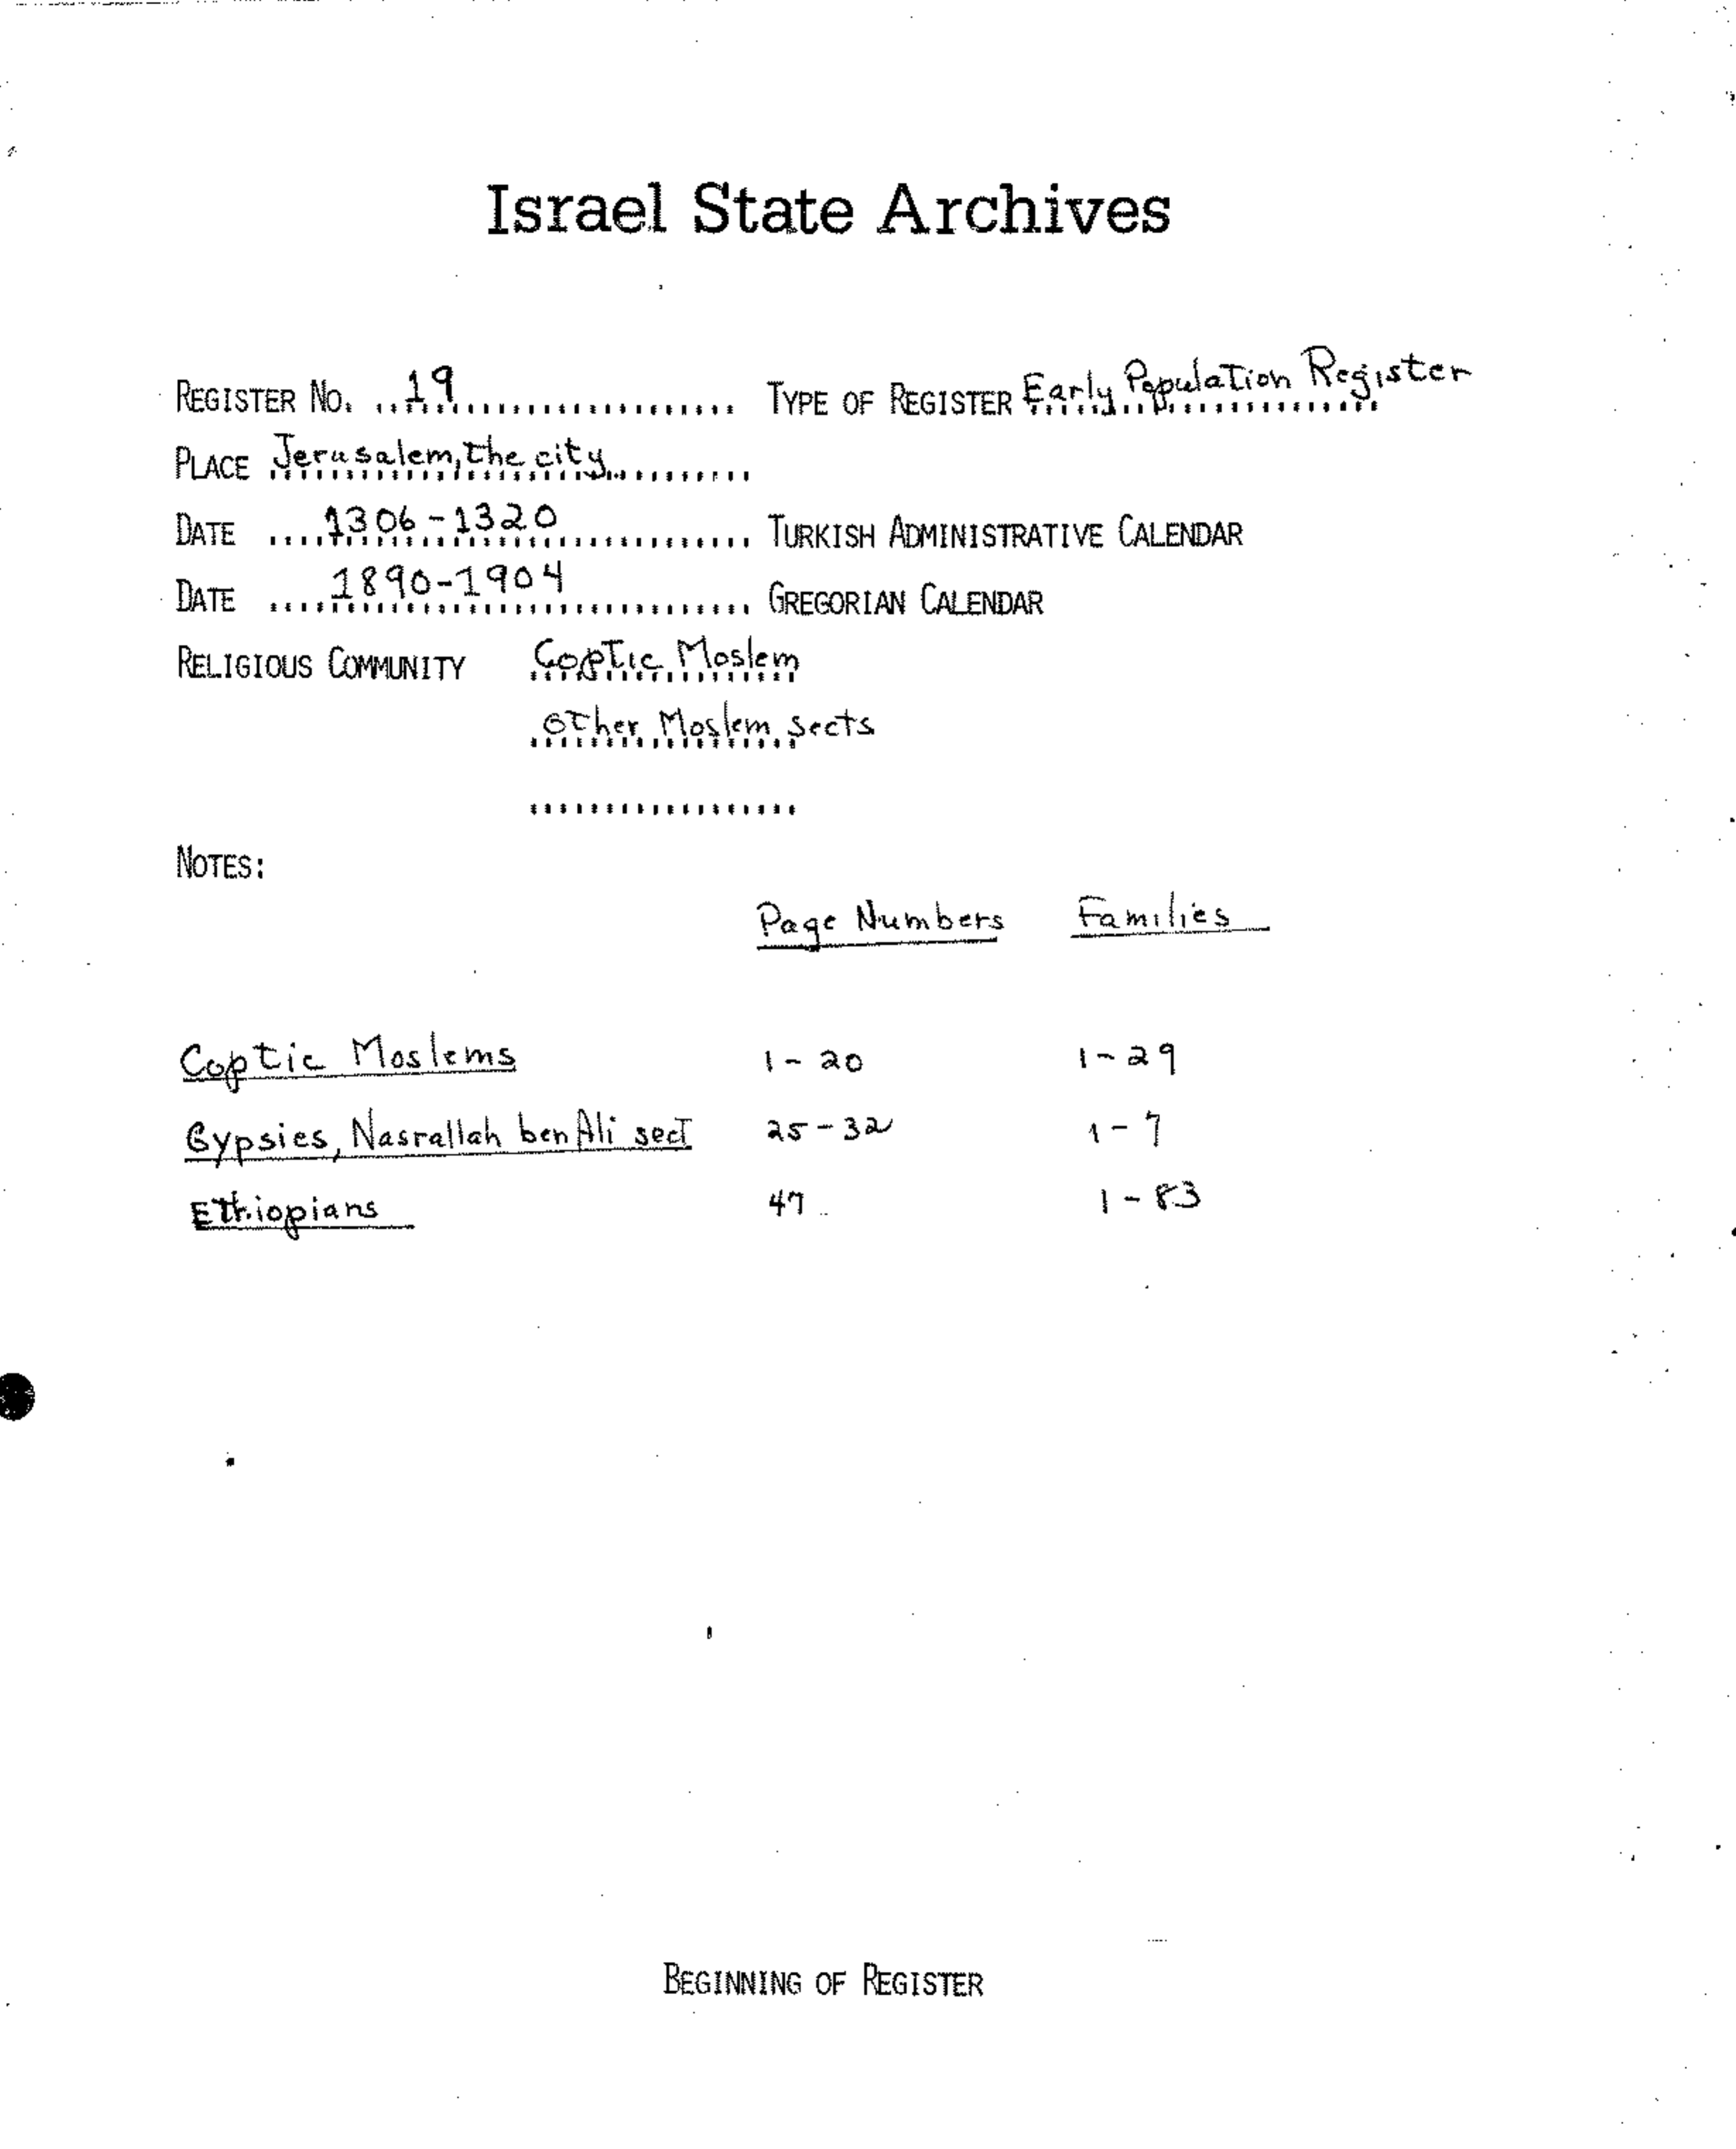 Israel State Archives
REGISTER NO. 19 TYPE OF REGISTER Early Population Register
PLACE Jerusalem, the city
DATE 1306-1320 TURKISH ADMINISTRATIVE CALENDAR
DATE 1890-1904 GREGORIAN CALENDAR
RELIGIOUS COMMUNITY Coptic Moslem
other Moslem sects
NOTES:
Page Numbers Families
Coptic Moslems 1-20 1-29
Gypsies, Nasrallah ben Ali sect 25-32 1-7
Ethiopians 47 1-83
BEGINNING OF REGISTER